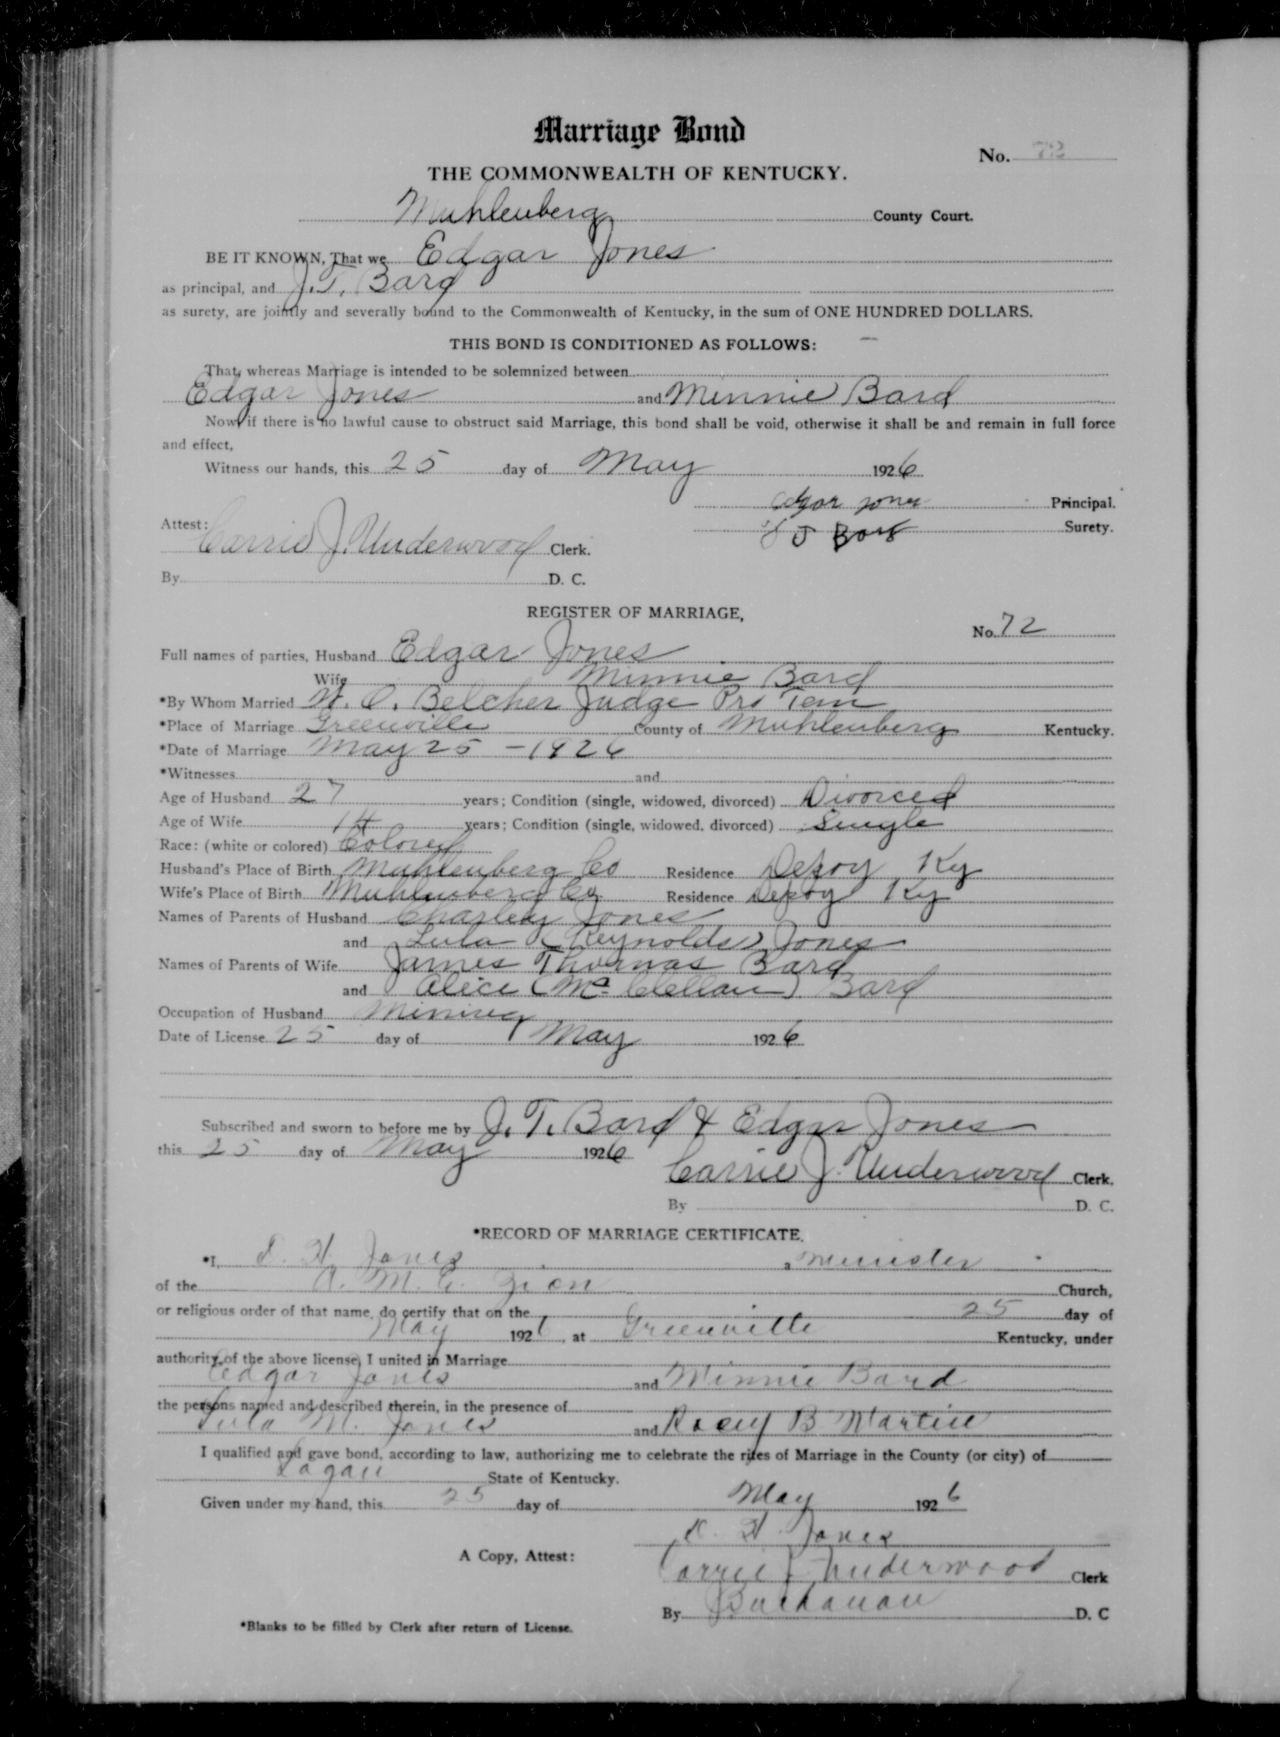 Marriage Bond
No. 72
THE COMMONWEALTH OF KENTUCKY.
Muhlenberg County Court.
BE IT KNOWN, That we Edgar Jones
as principal, and J. T. Bard
as surety, are jointly and severally bound to the Commonwealth of Kentucky, in the sum of ONE HUNDRED DOLLARS.
THIS BOND IS CONDITIONED AS FOLLOWS:
That, whereas Marriage is intended to be solemnized between
Edgar Jones and Minnie Bard
Now, if there is no lawful cause to obstruct said Marriage, this bond shall be void, otherwise it shall be and remain in full force
and effect,
Witness our hands, this 25 day of May 1926
Edgar Jones Principal.
Attest: J T Bard Surety.
Carrie J. Underwood Clerk.
By D. C.
REGISTER OF MARRIAGE,
No. 72
Full names of parties, Husband Edgar Jones
Wife Minnie Bard
*By Whom Married W. O. Belcher Judge Pro Tem
*Place of Marriage Greenville County of Muhlenberg Kentucky.
*Date of Marriage May 25 - 1926
*Witnesses and
Age of Husband 27 years; Condition (single, widowed, divorced) Divorced
Age of Wife years; Condition (single, widowed, divorced) Single
Race: (white or colored) Colored
Husband's Place of Birth Muhlenberg Co Residence Depoy Ky
Wife's Place of Birth Muhlenberg Co. Residence Depoy Ky
Names of Parents of Husband Charley Jones
and Lula (Reynolds) Jones
Names of Parents of Wife James Thomas Bard
and Alice (McClellan) Bard
Occupation of Husband Mining
Date of License 25 day of May 1926
Subscribed and sworn to before me by J. T. Bard & Edgar Jones
this 25 day of May 1926
Carrie J. Underwood Clerk.
By D. C.
*RECORD OF MARRIAGE CERTIFICATE.
*I, D. H. Jones, a minister
of the A. M. E. Zion Church,
or religious order of that name, do certify that on the 25 day of
May 1926, at Greenville Kentucky, under
authority of the above license, I united in Marriage
Edgar Jones and Minnie Bard
the persons named and described therein, in the presence of
Lula M. Jones and B Martin
I qualified and gave bond, according to law, authorizing me to celebrate the rites of Marriage in the County (or city) of
Logan State of Kentucky.
Given under my hand, this 25 day of May 1926
D. H. Jones
A Copy, Attest: Carrie J Underwood Clerk
By J Buchanan D. C
*Blanks to be filled by Clerk after return of License.